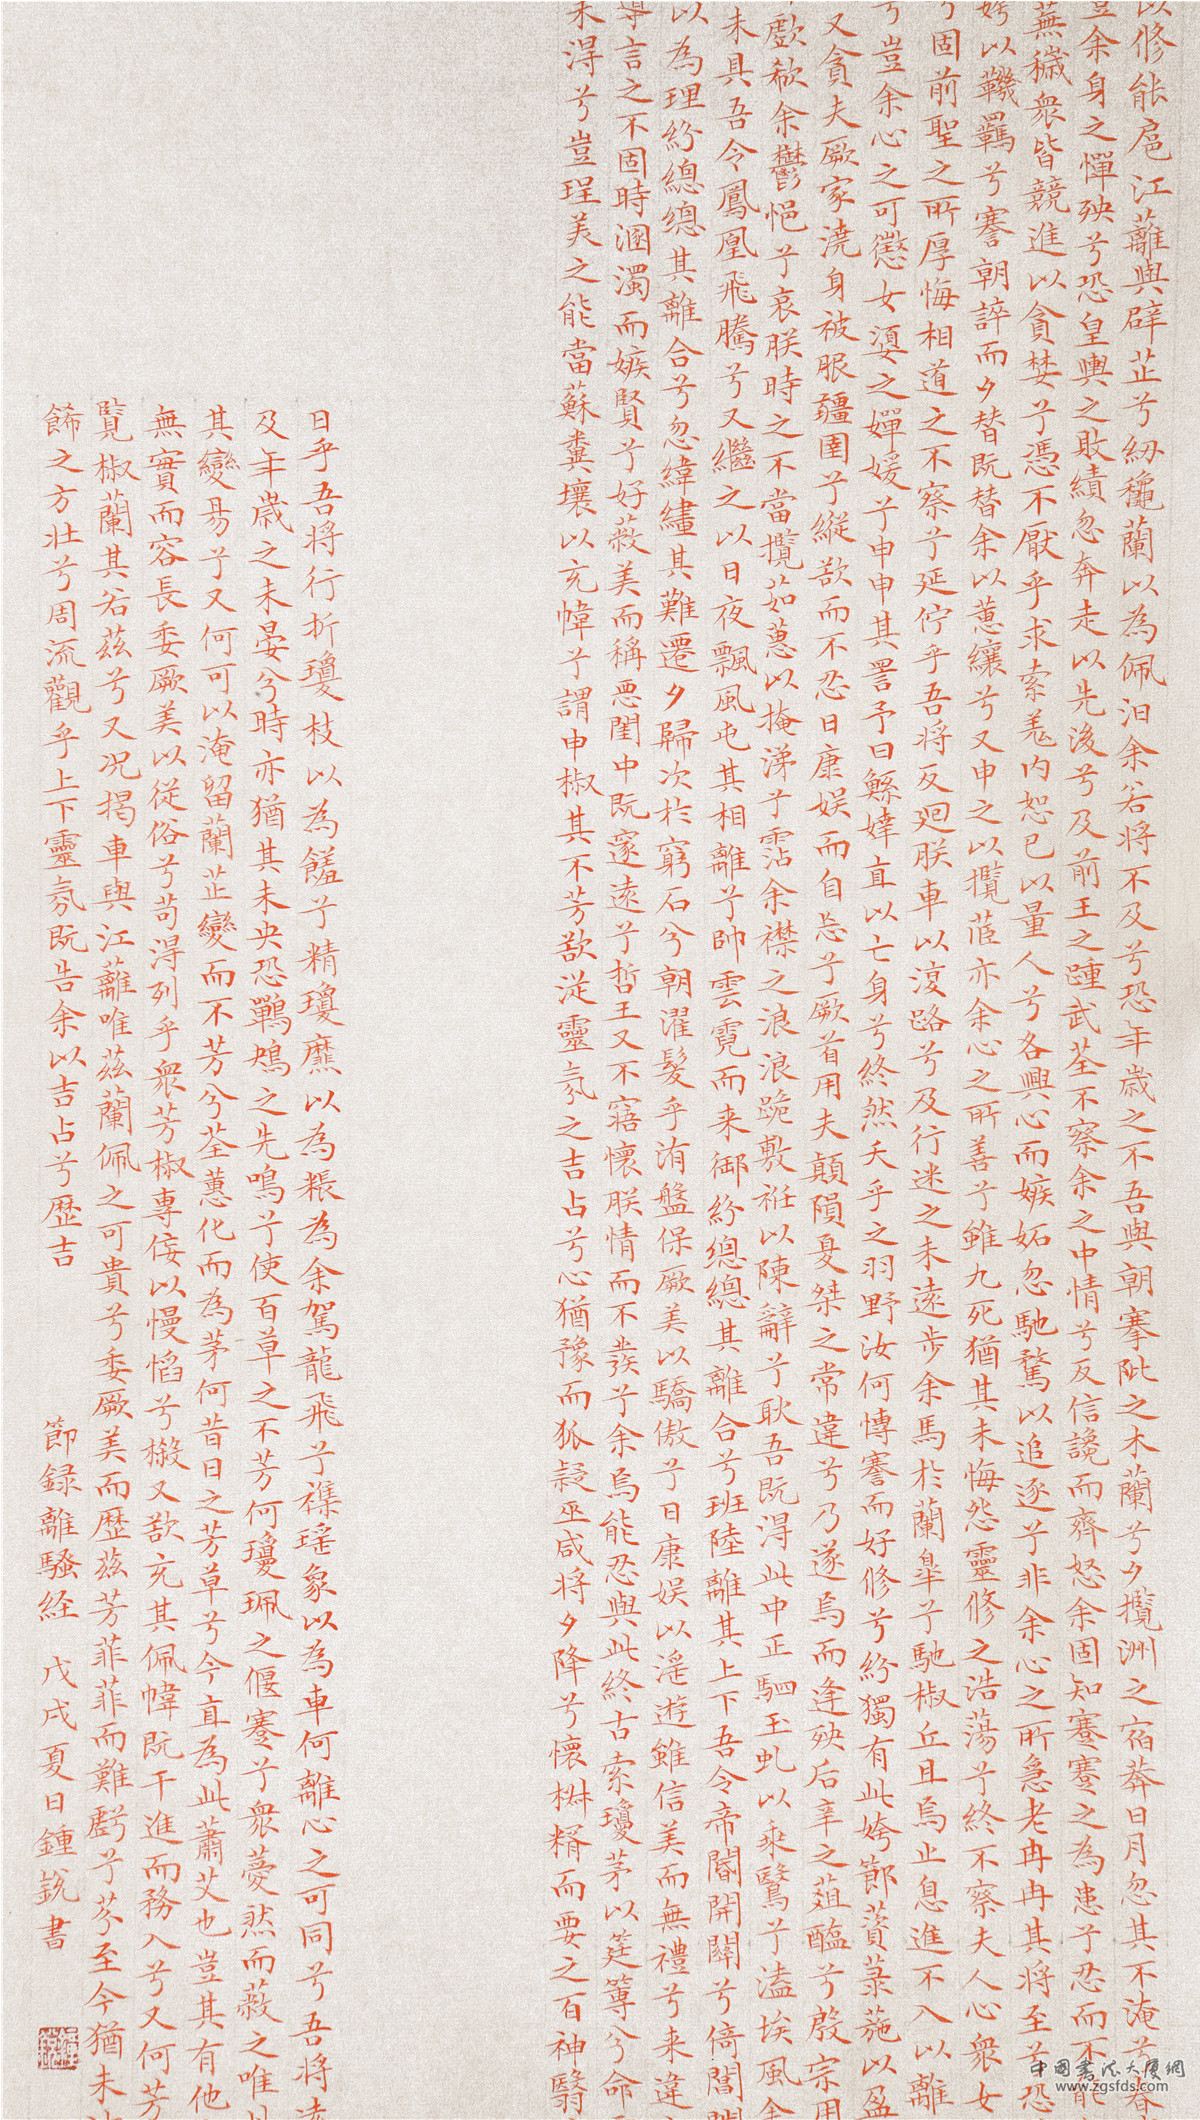 以修能扈江蘺與辟芷兮紉穐蘭以為佩汩余若將不及兮恐年歲之不吾與朝搴阰之木蘭兮夕攬洲之宿莽日月忽其不淹兮春
豈余身之憚殃兮恐皇輿之敗績忽奔走以先後兮及前王之踵武荃不察余之中情兮反信讒而齊怒余固知謇謇之為患兮忍而不能
蕪穢衆皆競進以貪婪兮憑不厭乎求索羌内恕已以量人兮各興心而嫉妬忽馳騖以追逐兮非余心之所急老冉冉其將至兮恐
姱以鞿羈兮謇朝誶而夕替既替余以蕙纕兮又申之以攬茝亦余心之所善兮雖九死猶其未悔怨靈修之浩蕩兮終不察夫人心衆女
固前聖之所厚悔相道之不察兮延佇乎吾將反廻朕車以復路兮及行迷之未遠步余馬於蘭皋兮馳椒丘且焉止息進不入以離
兮豈余心之可懲女嬃之嬋媛兮申申其詈予曰鯀婞直以亡身兮終然夭乎之羽野汝何博謇而好修兮紛獨有此姱節薋菉葹以盈
又貪夫厥家澆身被服彊圉兮縱欲而不忍日康娱而自忘兮厥首用夫顛隕夏桀之常違兮乃遂焉而逢殃后辛之葅醢兮殷宗用
歔欷余鬱悒兮哀朕時之不當攬茹蕙以掩涕兮霑余襟之浪浪跪敷衽以陳辭兮耿吾既得此中正駟玉虬以乘鷖兮溘埃風余
未具吾令鳳凰飛騰兮又繼之以日夜飄風屯其相離兮帥雲霓而来御紛總總其離合兮班陸離其上下吾令帝閽開關兮倚閶
以為理紛總總其離合兮忽緯繣其難遷夕歸次於窮石兮朝濯髮乎洧盤保厥美以驕傲兮日康娱以淫遊雖信美而無禮兮来違
導言之不固時溷濁而嫉賢兮好蔽美而稱惡閨中既邃遠兮哲王又不寤懷朕情而不發兮余焉能忍與此終古索瓊茅以筳篿兮命
未得兮豈珵美之能當蘇糞壤以充幃兮謂申椒其不芳欲從靈氛之吉占兮心猶豫而狐疑巫咸將夕降兮懷椒糈而要之百神翳
日乎吾將行折瓊枝以為饈兮精瓊爢以為粻為余駕龍飛兮襍瑶象以為車何離心之可同兮吾將遠
及年歲之未晏兮時亦猶其未央恐鵜鴂之先鳴兮使百草之不芳何瓊珮之偃蹇兮衆薆然而蔽之唯
其變易兮又何可以淹留蘭芷變而不芳兮荃蕙化而為茅何昔日之芳草兮今直為此蕭艾也豈其有他
無實而容長委厥美以從俗兮苟得列乎衆芳椒專佞以慢慆兮樧又欲充其佩幃既干進而務入兮又何芳
覧椒蘭其若兹兮又况揭車與江蘺唯兹蘭佩之可貴兮委厥美而歷兹芳菲菲而難虧兮芬至今猶未
餙之方壯兮周流觀乎上下靈氛既告余以吉占兮歷吉
節録離騷経 戊戌夏日鍾鋭書
中国书法大厦網
www.zgsfds.com